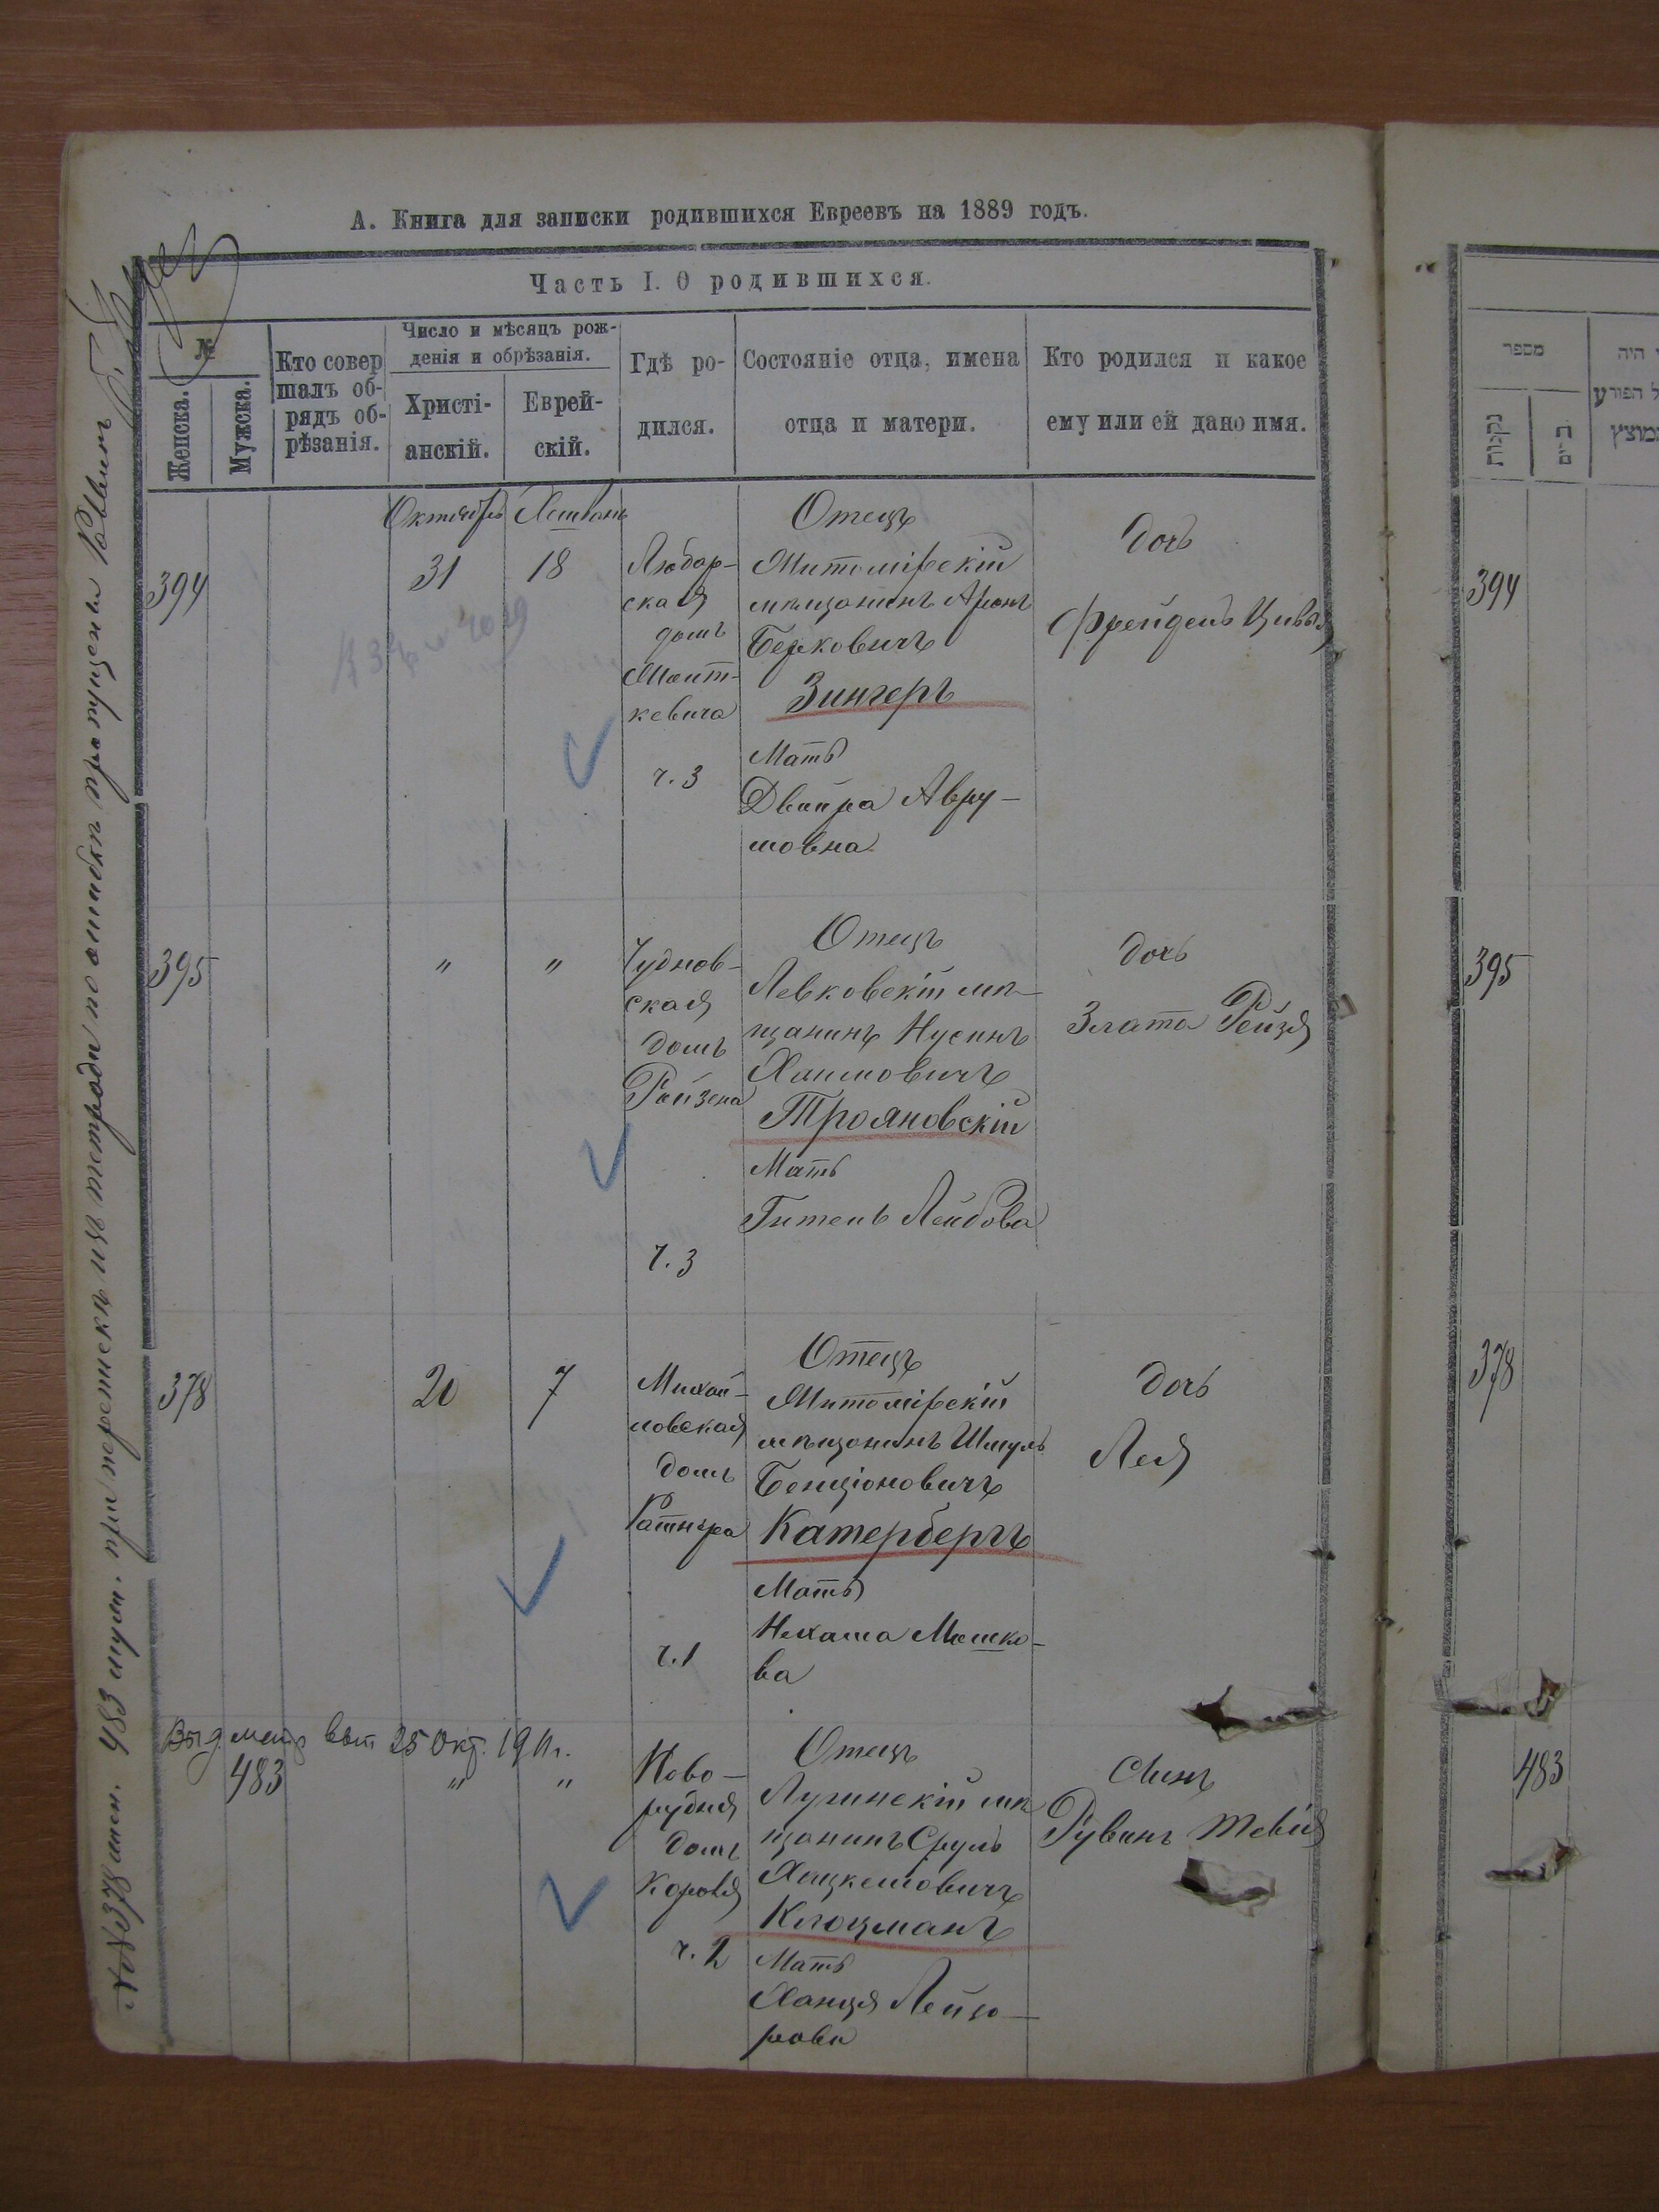 А. Книга для записки родившихся Евреевъ на 1889 годъ.
Часть I. О родившихся.
№
Женска.
Мужска.
Кто совер
шалъ об-
рядъ об-
рѣзанія.
Число и мѣсяцъ рож-
денія и обрѣзанія.
Христі-
анскій.
Еврей-
скій.
Гдѣ ро-
дился.
Состояніе отца, имена
отца и матери.
Кто родился и какое
ему или ей дано имя.
394
Октября
31
Хешванъ
18
Любар-
ская
домъ
кевича
ч. 3
Отецъ
Житомірскій
мѣщанинъ Аронъ
Берковичъ
Зингеръ
Мать
Двойра Авру-
мовна
дочь
Фрейдель Цивья
395
"
"
Чуднов-
ская
домъ
Ройзена
ч. 3
Отецъ
Левковскій мѣ-
щанинъ Нусинъ
Хаимовичъ
Трояновскій
Мать
Гитель Лейбова
дочь
Злата Рейзя
378
20
7
Михай-
ловская
домъ
Ратнера
ч. 1
Отецъ
Житомірскій
мѣщанинъ Шмуль
Бенціоновичъ
Катербергъ
Мать
Нехама Мошко-
ва
дочь
Лея
Выд. метр. вып 25 Окт. 1911.
483
"
"
Ново-
рудня
домъ
ч. 2
Отецъ
Лугинскій мѣ
щанинъ Сруль
Хацкелевичъ
Клоцманъ
Мать
Ханця Лейзо-
рова
Сынъ
Рувинъ Тевія
№№ 378 жен. 483 муж. при перепискѣ изъ тетради по ошибкѣ пропущены Раввинъ
מספר
נקבות
זכרים
היה
הפורע
394
395
378
483